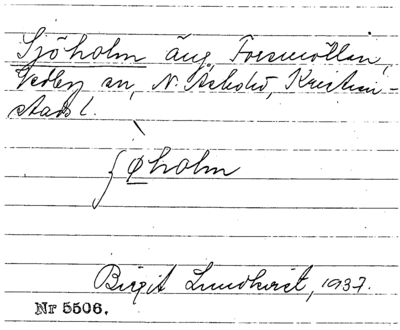 Sjöholm äng, Forsmöllan,
Vedby sn, N. Åsbohd, Kristian-
stads l.
ʃøholm
Birgit Lundkvist, 1937.
Nr 5506.